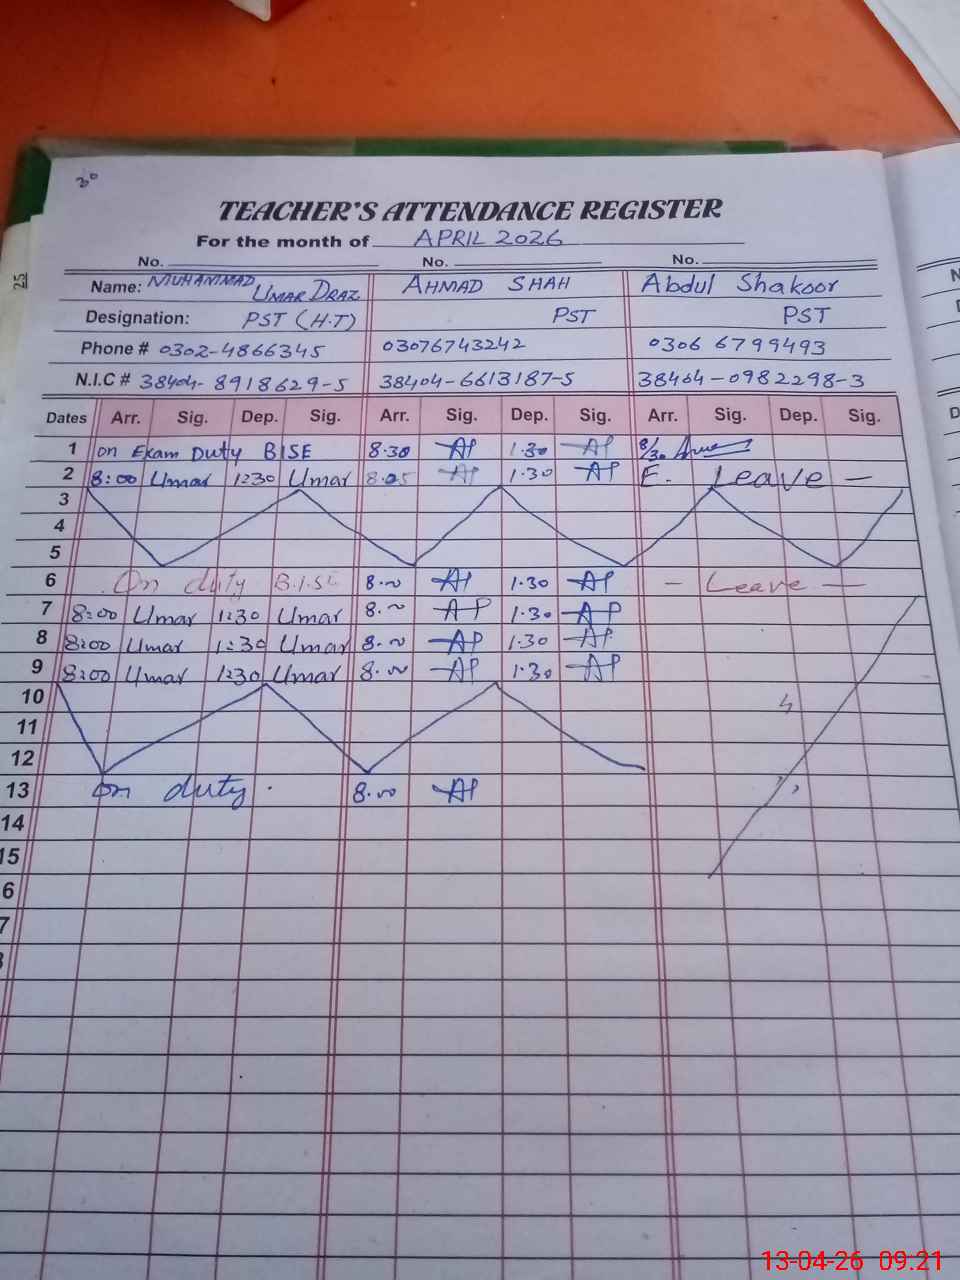 30
TEACHER'S ATTENDANCE REGISTER
For the month of APRIL 2026
No. No. No.
25
Name: MUHAMMAD UMAR DRAZ AHMAD SHAH Abdul Shakoor
Designation: PST (H.T) PST PST
Phone # 0302-4866345 03076743242 0306 6799493
N.I.C # 38404-8918629-5 38404-6613187-5 38404-0982298-3
Dates Arr. Sig. Dep. Sig. Arr. Sig. Dep. Sig. Arr. Sig. Dep. Sig.
1 on Exam Duty BISE 8.30 AP 1.30 AP 8/30
2 8:00 Umar 1:30 Umar 8.05 AP 1.30 AP E. Leave -
3
4
5
6 On duty B.I.S.E 8.00 AP 1.30 AP - Leave -
7 8:00 Umar 1:30 Umar 8.00 AP 1.30 AP
8 8:00 Umar 1:30 Umar 8.00 AP 1.30 AP
9 8:00 Umar 1:30 Umar 8.00 AP 1.30 AP
10
11
12
13 on duty. 8.00 AP
14
15
6
7
13-04-26 09:21